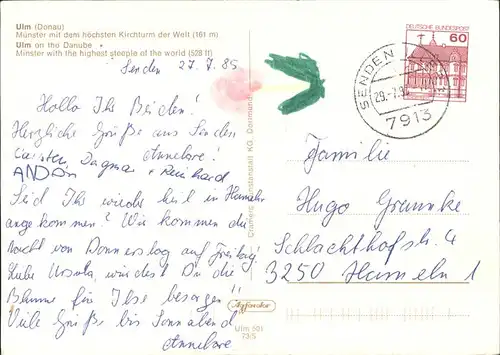 Ulm (Donau)
Münster mit dem höchsten Kirchturm der Welt (161 m)
Ulm on the Danube
Minster with the highest steeple of the world (528 ft)
Senden 27.7.85
Hallo Ihr Beiden!
Herzliche Grüße aus Senden
Annelore!
Carsten, Dagmar + Reinhard
Seid Ihr wieder heil in Hameln
angekommen? Wir kommen die
Nacht von Donnerstag auf Freitag!
Liebe Ursula, würdest Du die
Blume für Ilse besorgen!!
Viele Grüße bis Sonnabend
Annelore
Agfacolor
Ulm 501
73/5
DEUTSCHE BUNDESPOST
60
SENDEN
7913
Familie
Hugo Graunke
Schlachthofstr. 4
3250 Hameln 1